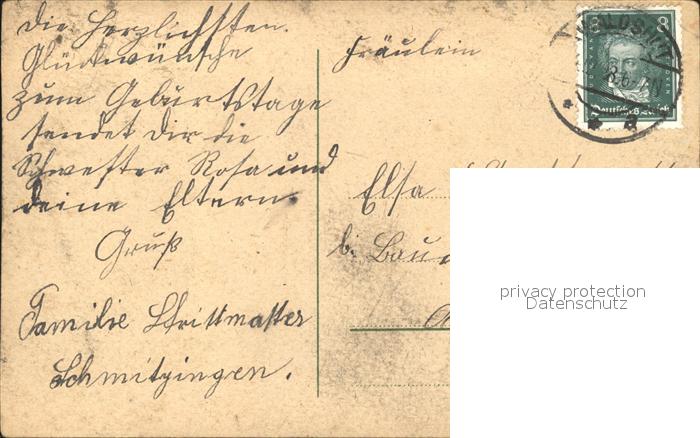 Die Herzlichsten.
Glückwünsche
zum Gebürtstage
sendet Dir die
Schwester Rosa und
deine Eltern.
Gruß
Familie Strittmatter
Schmitzingen.
Fräulein
Elsa
b.
8 8
Deutsches Reich
privacy protection
Datenschutz